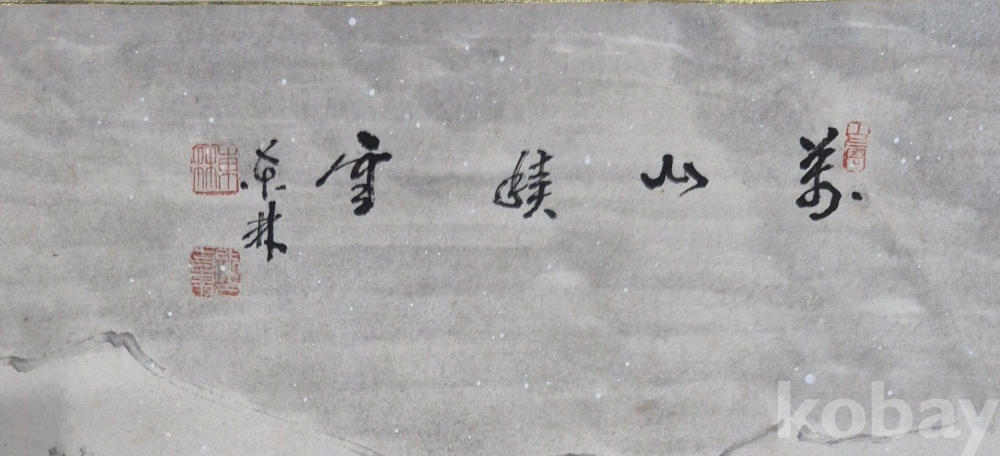 萬山積雪
東林
東林
kobay